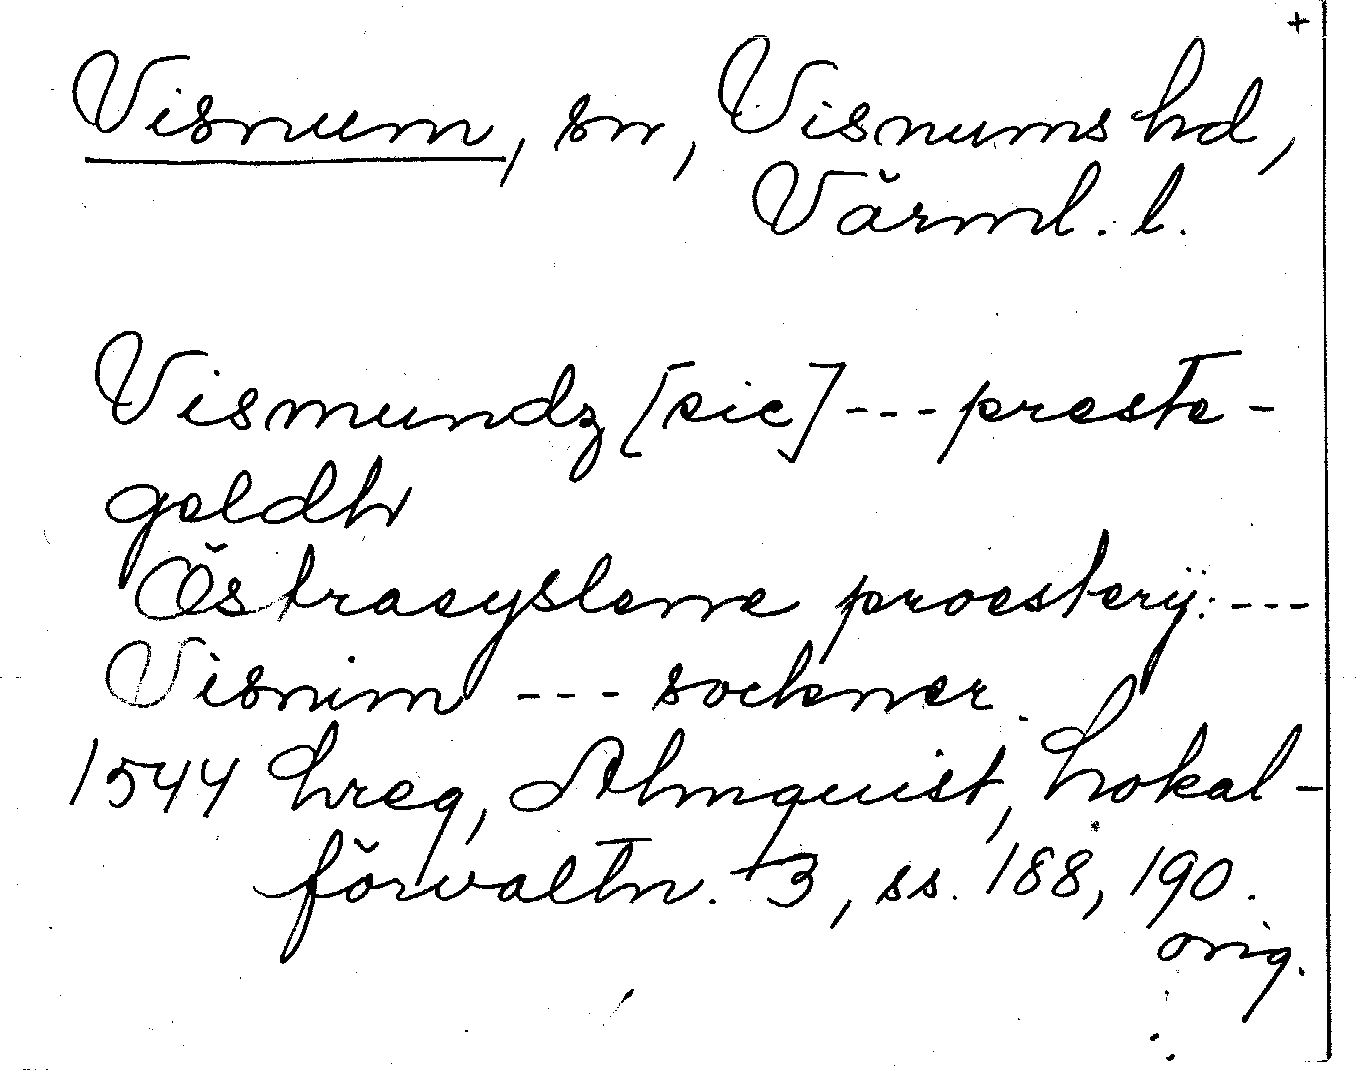 +
Visnum, sn, Visnums hd,
Värml. l.
Vismundz [sic] --- preste-
geldh
Östrasyslenne proestery: ---
Visnim --- sockener.
1544 hreg, Almquist, Lokal-
förvaltn. 3, ss. 188, 190.
orig.